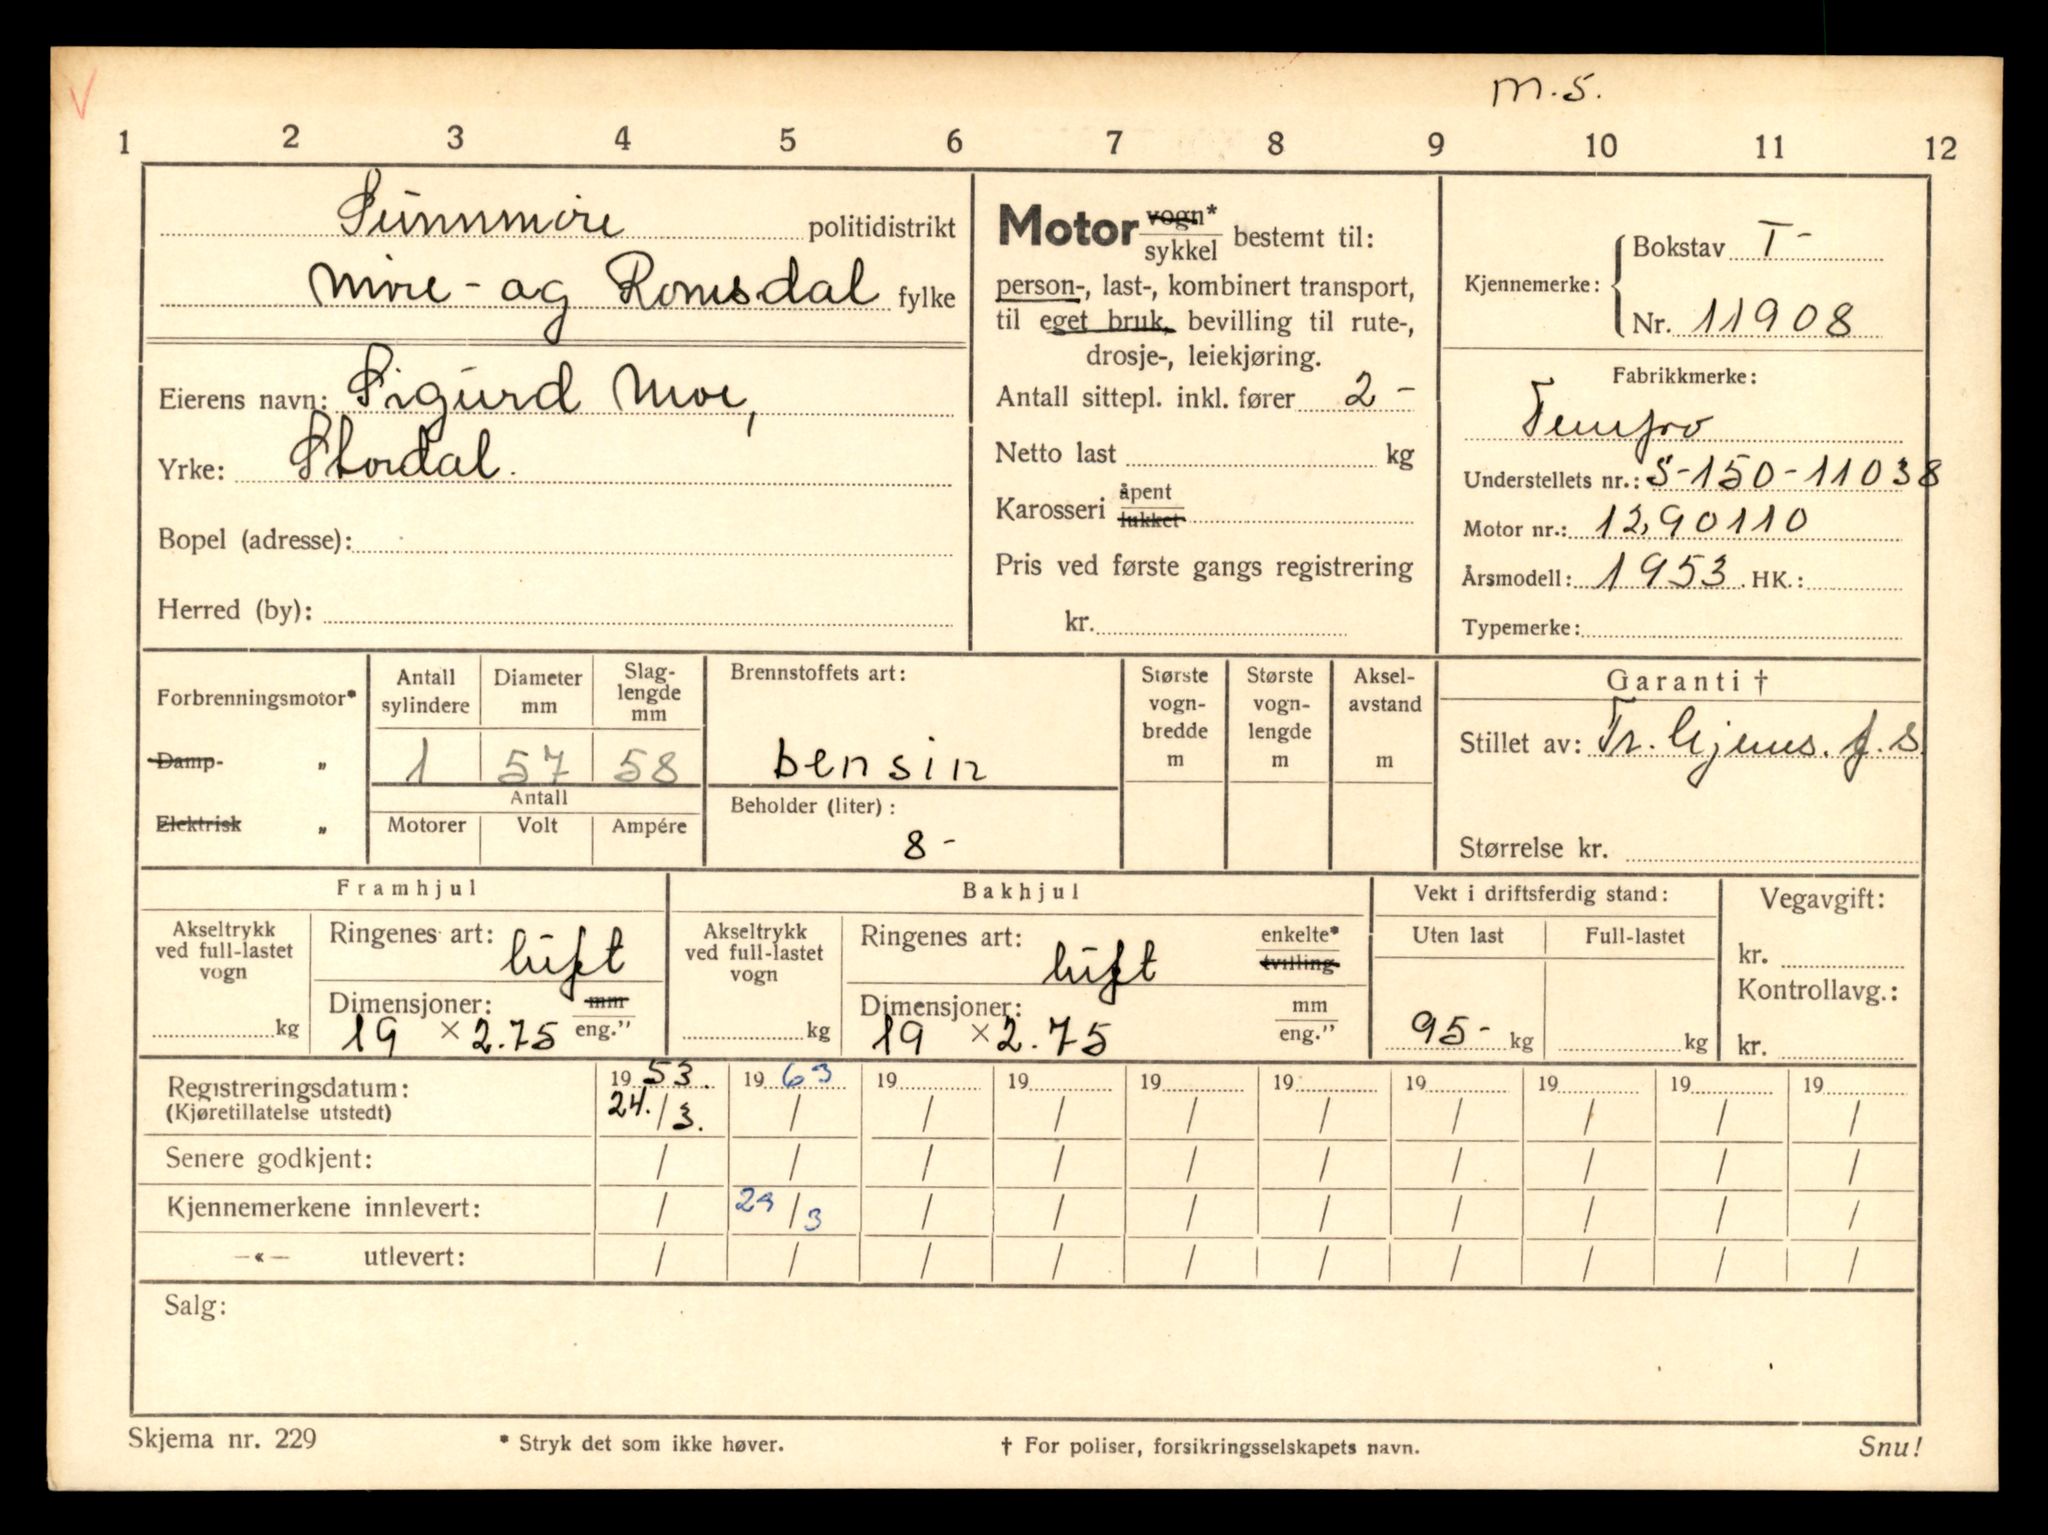 m.s.
1 2 3 4 5 6 7 8 9 10 11 12
Sunnmøre politidistrikt
Møre- og Romsdal fylke
Eierens navn: Sigurd Moe,
Yrke: Stordal.
Bopel (adresse):
Herred (by):
Motor vogn*
sykkel bestemt til:
person-, last-, kombinert transport,
til eget bruk, bevilling til rute-,
drosje-, leiekjøring.
Antall sittepl. inkl. fører 2 -
Netto last kg
Karosseri åpent
lukket
Pris ved første gangs registrering
kr.
Kjennemerke: Bokstav T-
Nr. 11908
Fabrikkmerke:
Tempo
Understellets nr.: S-150-11038
Motor nr.: 1290110
Årsmodell: 1953 HK.:
Typemerke:
Forbrenningsmotor*
Damp- „
Elektrisk „
Antall sylindere
Diameter mm
Slag-
lengde
mm
1 57 58
Antall
Motorer Volt Ampére
Brennstoffets art:
bensin
Beholder (liter):
8 -
Største
vogn-
bredde
m
Største
vogn-
lengde
m
Aksel-
avstand
m
Garanti †
Stillet av: Tr. Gjens. f. S.
Størrelse kr.
Framhjul
Akseltrykk
ved full-lastet
vogn
kg
Ringenes art: luft
Dimensjoner: mm
19 × 2.75 eng.”
Bakhjul
Akseltrykk
ved full-lastet
vogn
kg
Ringenes art: luft enkelte*
tvilling
Dimensjoner: mm
19 × 2.75 eng.”
Vekt i driftsferdig stand:
Uten last Full-lastet
95- kg kg
Vegavgift:
kr.
Kontrollavg.:
kr.
Registreringsdatum: 19 53. 19 63 19 19 19 19 19 19 19 19
(Kjøretillatelse utstedt) 24. / 3. / / / / / / / / /
Senere godkjent: / / / / / / / / / /
Kjennemerkene innlevert: / 29 / 3 / / / / / / / /
—«— utlevert: / / / / / / / / / /
Salg:
Skjema nr. 229 * Stryk det som ikke høver. † For poliser, forsikringsselskapets navn. Snu!